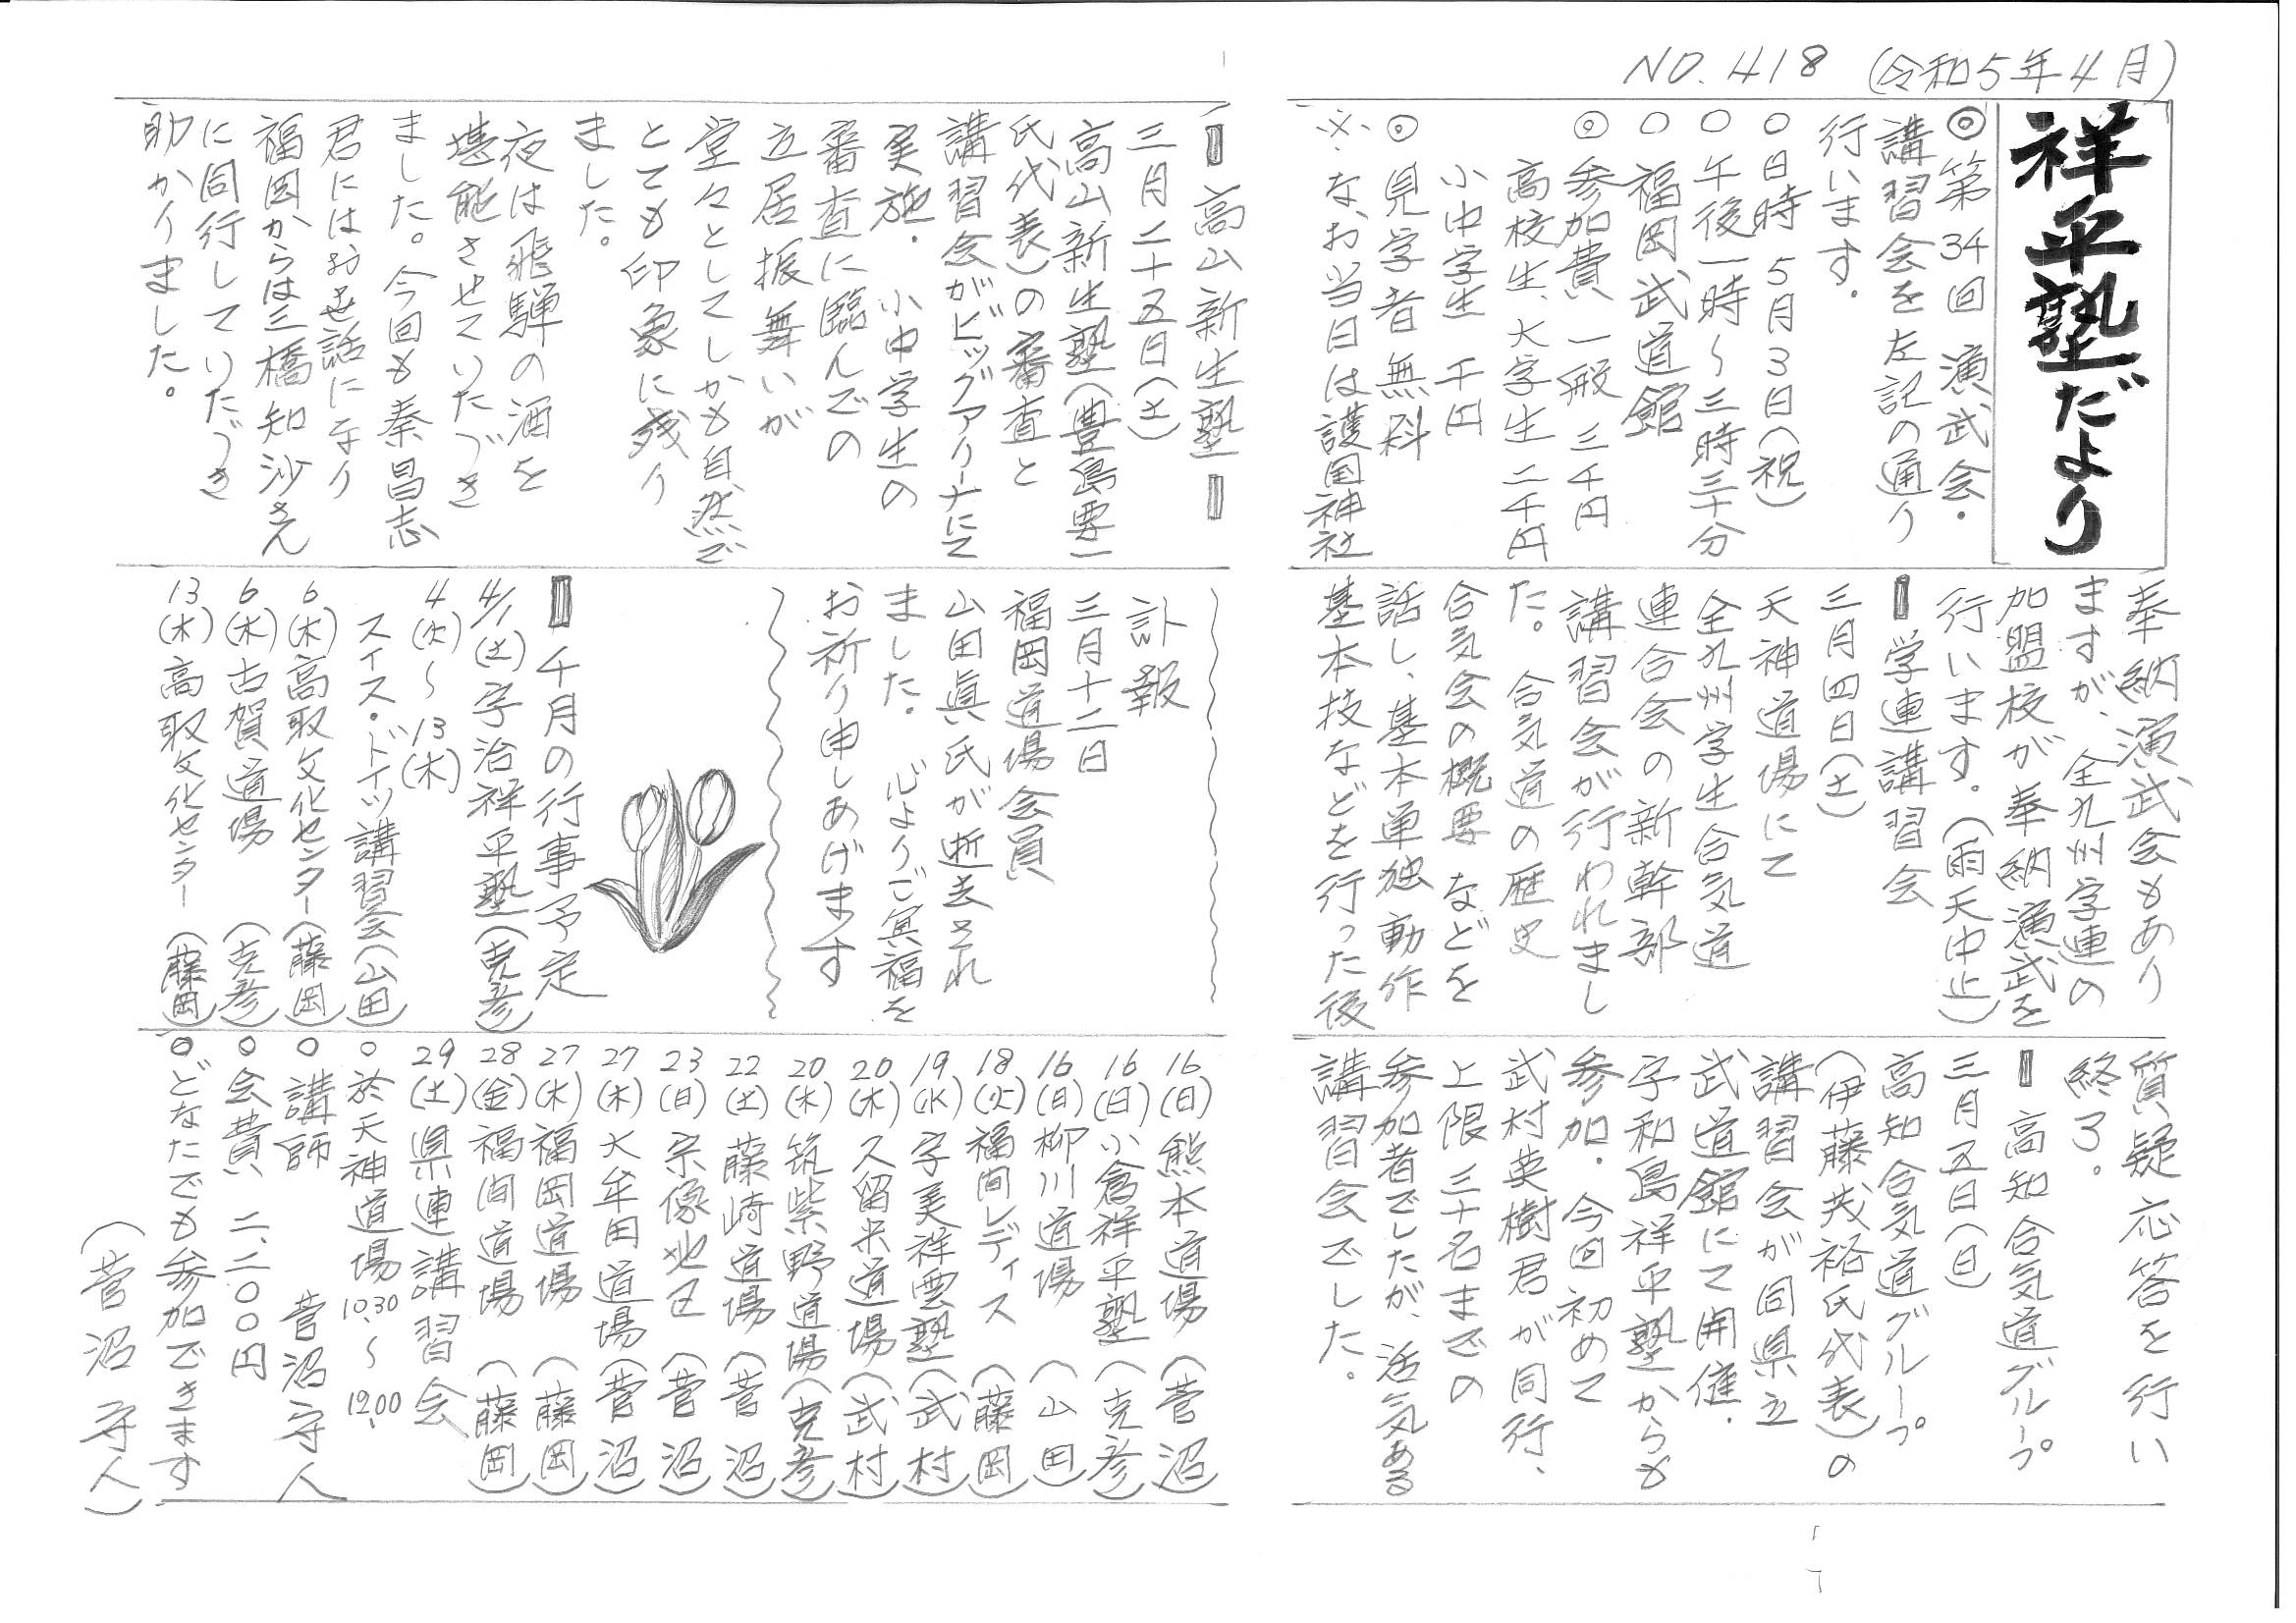 NO.418 (令和5年4月)
祥平塾だより
◎第34回 演武会・
講習会を左記の通り
行います。
○日時 5月3日(祝)
○午後一時～三時三十分
○福岡武道館
◎参加費 一般 三千円
高校生、大学生 二千円
小中学生 千円
◎見学者 無料
※なお当日は護国神社
奉納演武会もあり
ますが、全九州学連の
加盟校が奉納演武を
行います。(雨天中止)
学連講習会
三月四日(土)
天神道場にて
全九州学生合気道
連合会の新幹部
講習会が行われまし
た。合気道の歴史
合気会の概要などを
話し、基本単独動作
基本技などを行った後
質疑応答を行い
終了。
高知合気道グループ
三月五日(日)
高知合気道グループ
(伊藤茂裕氏代表)の
講習会が同県立
武道館にて開催・
宇和島祥平塾からも
参加・今回初めて
武村英樹君が同行、
上限三十名までの
参加者でしたが、活気ある
講習会でした。
高山新生塾
三月二十五日(土)
高山新生塾(豊島要一
氏代表)の審査と
講習会がビッグアリーナにて
実施・小中学生の
審査に臨んでの
立居振舞いが
堂々としてしかも自然で
とても印象に残り
ました。
夜は飛騨の酒を
堪能させていたゞき
ました。今回も秦昌志
君にはお世話になり
福岡からは三橋知沙さん
に同行していたゞき
助かりました。
訃報
三月十二日
福岡道場会員
山田眞氏が逝去され
ました。心よりご冥福を
お祈り申しあげます
千月の行事予定
4/1(土)宇治祥平塾(克彦)
4(火)～13(木)
スイス・ドイツ講習会(山田)
6(木)高取文化センター(藤岡)
6(木)古賀道場 (克彦)
13(木)高取文化センター (藤岡)
16(日)熊本道場 (菅沼)
16(日)小倉祥平塾 (克彦)
16(日)柳川道場 (山田)
18(火)福間レディス (藤岡)
19(水)宇美祥雲塾(武村)
20(木)久留米道場(武村)
20(木)筑紫野道場(克彦)
22(土)藤崎道場 (菅沼)
23(日)宗像地区 (菅沼)
27(木)大牟田道場(菅沼)
27(木)福岡道場 (藤岡)
28(金)福間道場 (藤岡)
29(土)県連講習会
○於天神道場 10.30～12.00.
○講師 菅沼守人
○会費 二、二〇〇円
○どなたでも参加できます
(菅沼守人)